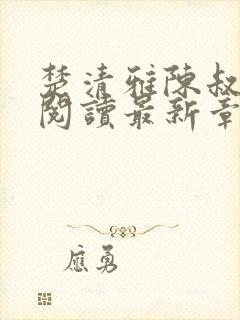 楚清雅陳叔
閱讀最新章
應勇